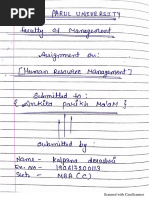 PARUL UNIVERSITY
Faculty of Management
Assignment on:
[Human Resource Management]
Submitted to:
{ Ankita parikh Ma'am }
Submitted by
Name - Kalpana devashri
En. no - 190613200113
Sect - MBA (C)
Scanned with CamScanner